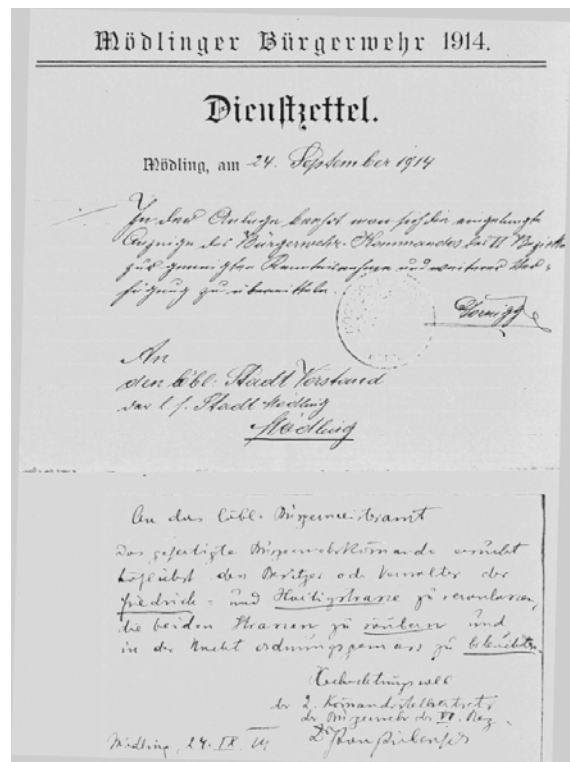 Mödlinger Bürgerwehr 1914.
Dienstzettel.
Mödling, am 24. September 1914
In der Anlage beehrt man sich die eingelangte
Anzeige des Bürgerwehr-Kommandos des VI Bezirkes
zur geneigten Kenntnisnahme und weiterer Ver-
fügung zu übermitteln.
An
den löbl: Stadt Vorstand
der l. f. Stadt Mödling
Mödling
An das löbl. Bürgermeisteramt
Das gefertigte Bürgerwehrkomando ersucht
höflichst den Besitzer oder Verwalter der
Friedrich- und Haitigstrasse zu veranlassen,
die beiden Strassen zu säubern und
in der Nacht ordnungsgemäss zu beleuchten.
Hochachtungsvoll
der 2. Komandostellvertreter
der Bürgerwehr des VI. Bez.
Mödling, 24. IX. 14
Dr